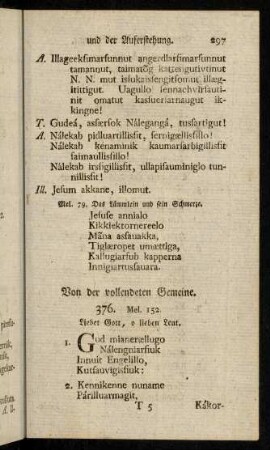 und der Auferstehung. 297
A. Illageeksimarsunnut angerdlarsimarsunnut
tamannut, taimatög kattengutivtinut
N. N. mut isfuksisfengitfomut illæg-
itittigut. Uagullo
nit omatut kasfueriarnaugut ik-
kingne!
T. Gudeá, asfærfok Nálegangá, tusfartigut!
A. Nálekab pidluartillisfit,
Nálekab kenaminik kaumarsarbigillisfit
faimaullisfillo!
Nálekab irsfigillisfit, ullapisfauminiglo tun-
nillisfit!
Ill. Jesum akkane, illomut.
Mel. 79. Das Lämmlein und sein Schmerz.
Jesufe annialo
Kikkiektornereelo
Mána asfauakka,
Tiglæropet umættiga,
Kallugiarfub kapperna
Innigiartusfauara.
Von der vollendeten Gemeine.
376. Mel. 152.
Lieber Gott, o lieben Leut.
1. Gud mianersllugo
Nálengniarfiuk
Innuit Engelillo,
Kutfauvigisfiuk:
2. Kennikenne nuname
Párilluarmagit,
T 5 Kákor-